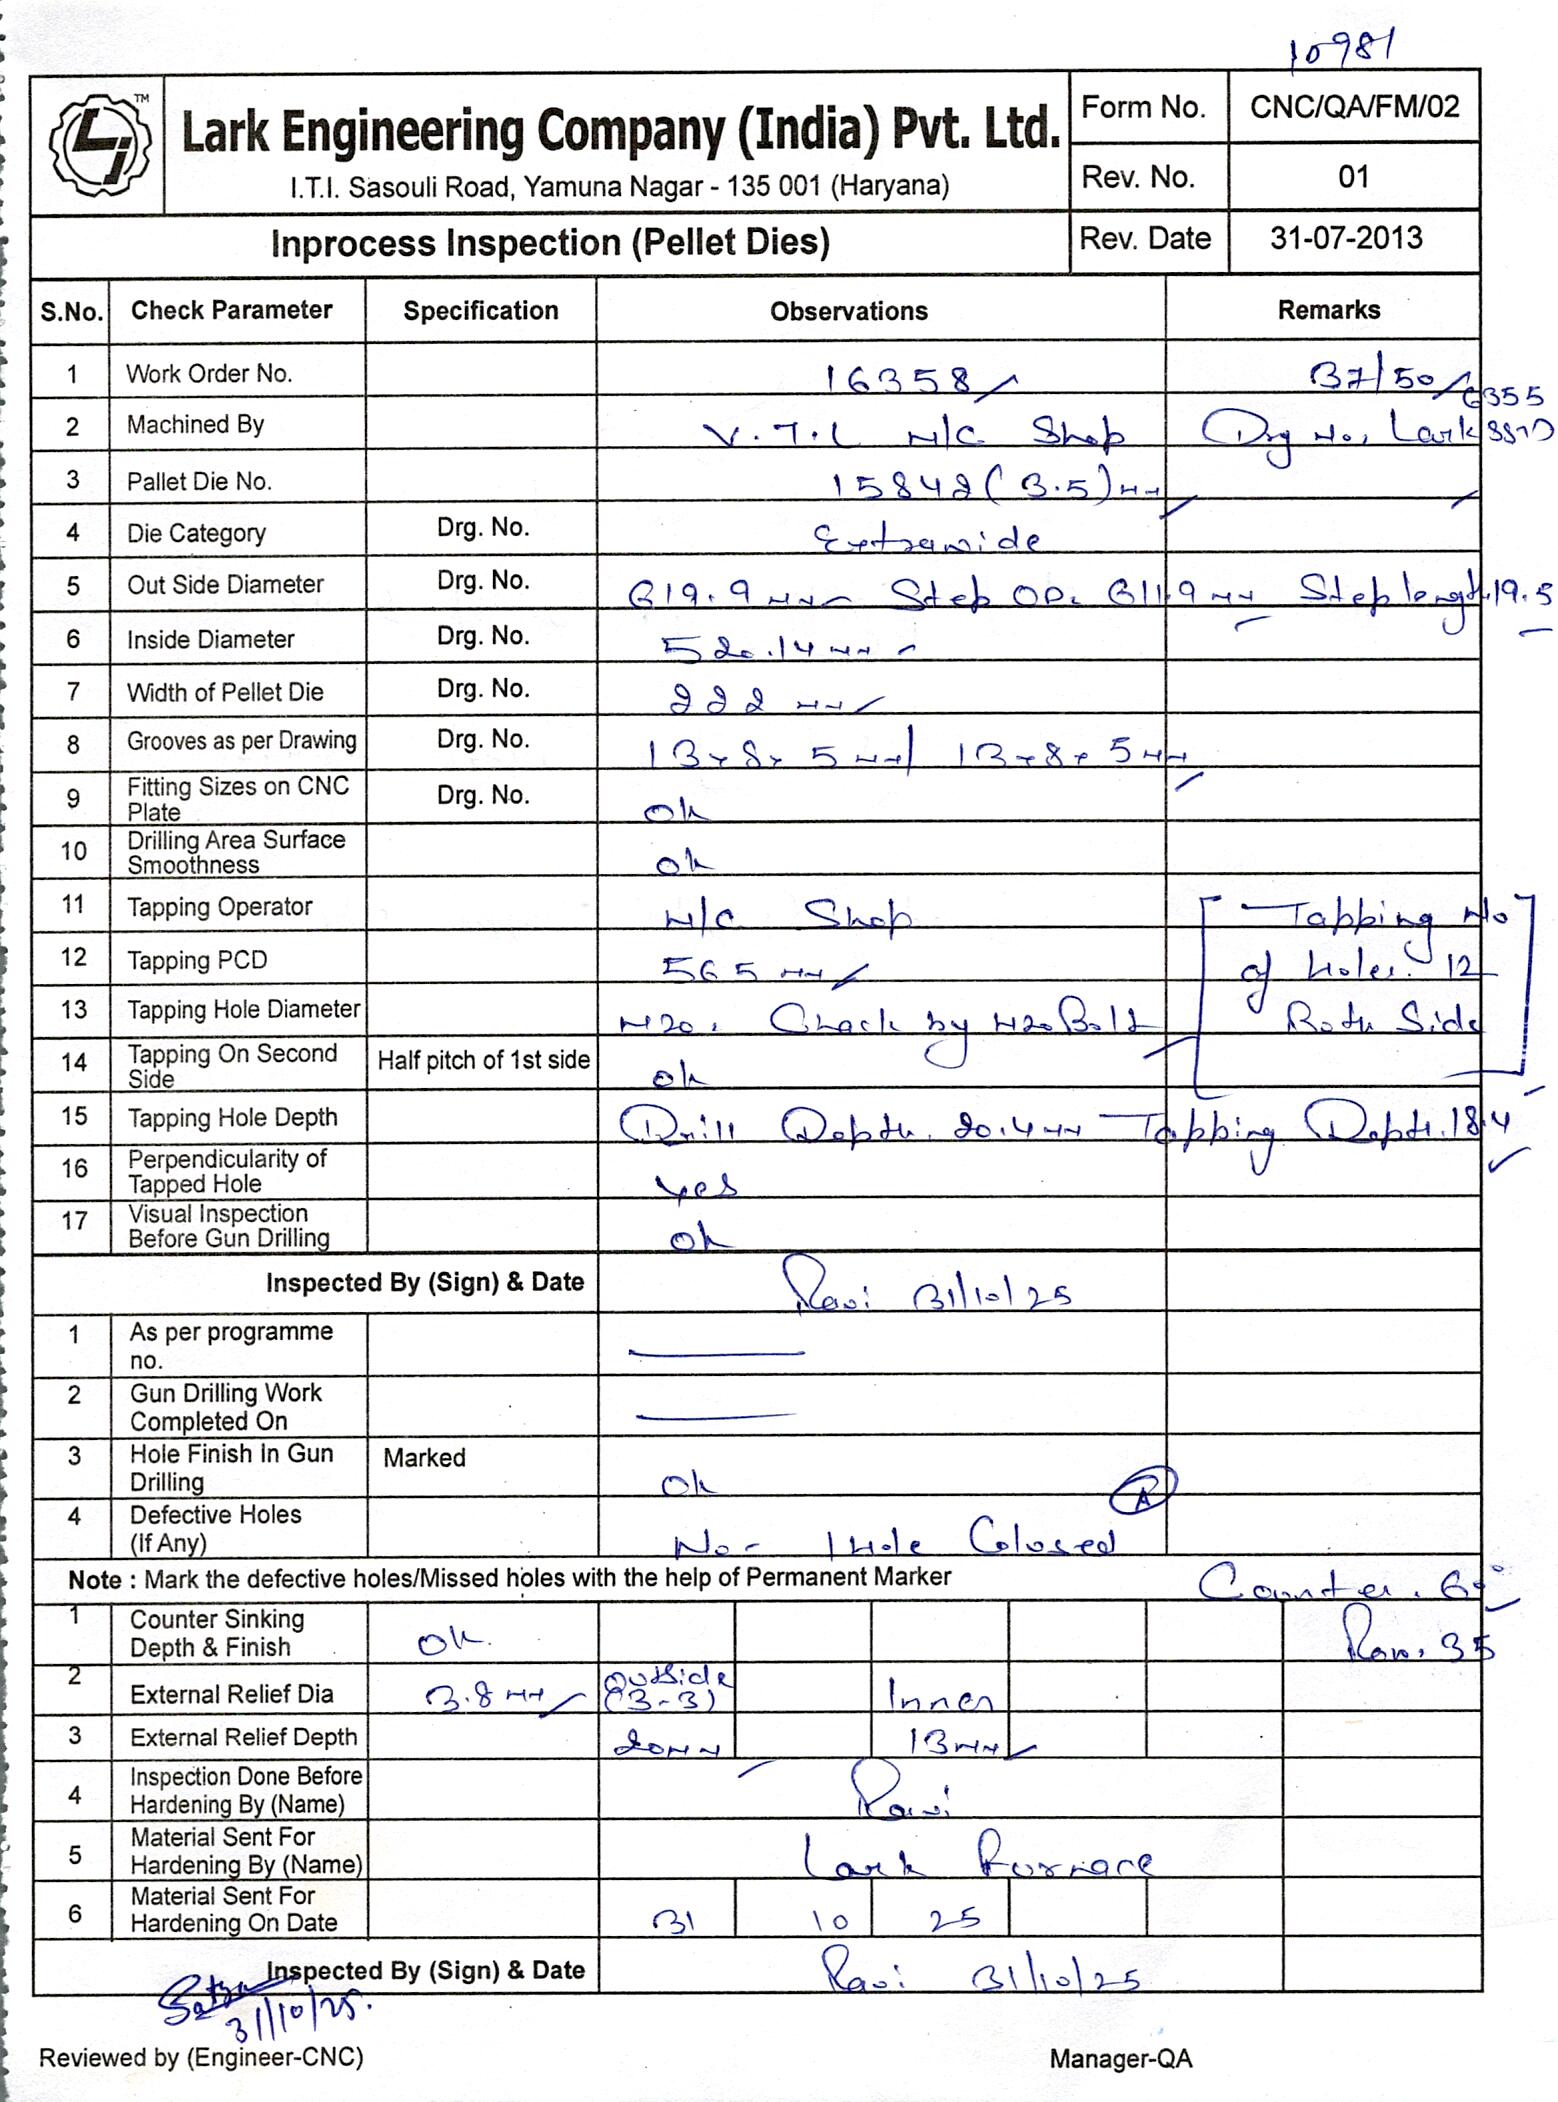 10981
TM
Lark Engineering Company (India) Pvt. Ltd.
I.T.I. Sasouli Road, Yamuna Nagar - 135 001 (Haryana)
Form No. CNC/QA/FM/02
Rev. No. 01
Inprocess Inspection (Pellet Dies) Rev. Date 31-07-2013
S.No. Check Parameter Specification Observations Remarks
1 Work Order No. 16358 37/50
6355
2 Machined By V.T.L M/C Shop Drg No. Lark
3 Pallet Die No. 15842 (3.5) mm
4 Die Category Drg. No. Extrawide
5 Out Side Diameter Drg. No. 619.9 mm Step OD. 611.9 mm Step length. 19.5
6 Inside Diameter Drg. No. 520.14 mm
7 Width of Pellet Die Drg. No. 222 mm
8 Grooves as per Drawing Drg. No. 13x8x5 mm / 13x8x5 mm
9 Fitting Sizes on CNC
Plate Drg. No. ok
10 Drilling Area Surface
Smoothness ok
11 Tapping Operator M/C Shop Tapping No
12 Tapping PCD 565 mm of Holes. 12
13 Tapping Hole Diameter M20. Check by M20 Bolt Both Side
14 Tapping On Second
Side Half pitch of 1st side ok
15 Tapping Hole Depth Drill Depth. 20.4 mm Tapping Depth. 18.4
16 Perpendicularity of
Tapped Hole yes
17 Visual Inspection
Before Gun Drilling ok
Inspected By (Sign) & Date Ravi 31/10/25
1 As per programme
no.
2 Gun Drilling Work
Completed On
3 Hole Finish In Gun
Drilling Marked ok
A
4 Defective Holes
(If Any) No- 1 Hole Colosed
Note : Mark the defective holes/Missed holes with the help of Permanent Marker Counter. 60°
1 Counter Sinking
Depth & Finish ok. 35
2 External Relief Dia 3.8 mm Outside
(3-3) Inner
3 External Relief Depth 20 mm 13 mm
4 Inspection Done Before
Hardening By (Name) Ravi
5 Material Sent For
Hardening By (Name) Lark Furnace
6 Material Sent For
Hardening On Date 31 10 25
Inspected By (Sign) & Date Ravi 31/10/25
31/10/25.
Reviewed by (Engineer-CNC) Manager-QA